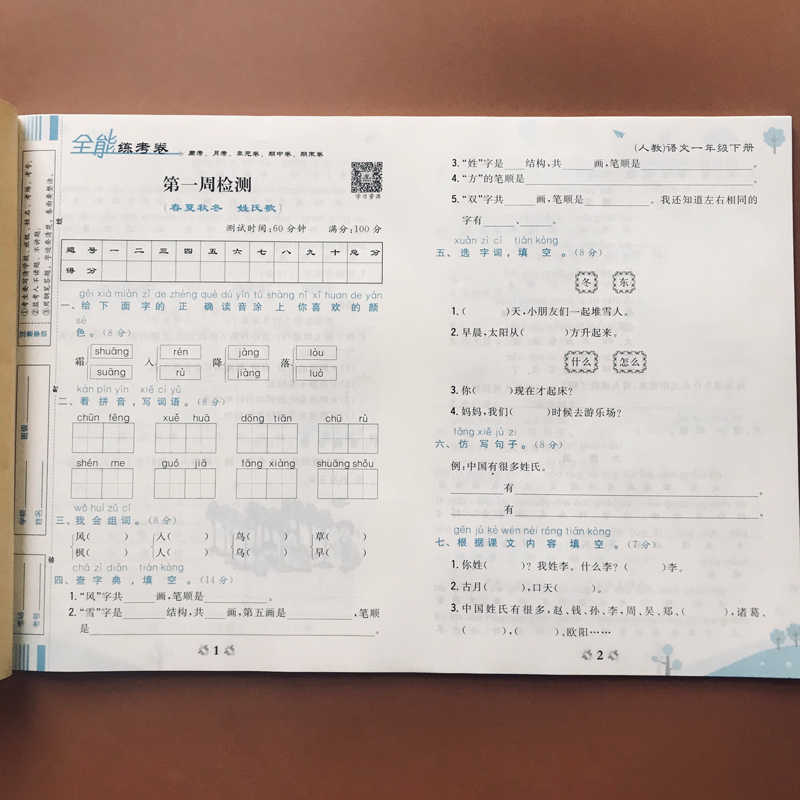 全能练考卷 周考、月考、单元卷、期中卷、期末卷
第一周检测
(春夏秋冬 姓氏歌)
学习资源
测试时间:60分钟 满分:100分
题号 一 二 三 四 五 六 七 八 九 十 总分
得分
gěi xià miàn zì de zhèng què dú yīn tú shàng nǐ xǐ huan de yán
一、给下面字的正确读音涂上你喜欢的颜
sè
色。(8分)
霜 shuāng shuāng 人 rén rú 降 jàng jiàng 落 lòu luò
kàn pīn yīn xiě cí yǔ
二、看拼音,写词语。(8分)
chūn fēng xuě huā dōng tiān chū rù
shén me guó jiā fāng xiàng shuāng shǒu
wǒ huì zǔ cí
三、我会组词。(8分)
风( ) 人( ) 鸟( ) 草( )
枫( ) 入( ) 乌( ) 早( )
chá zì diǎn tián kòng
四、查字典,填空。(14分)
1.“风”字共____画,笔顺是____。
2.“雪”字是____结构,共____画,第五画是____,笔顺
是____。
1
(人教)语文一年级下册
3.“姓”字是____结构,共____画,笔顺是____。
4.“方”的笔顺是____。
5.“双”字共____画,笔顺是____。我还知道左右相同的
字有____、____。
xuǎn zì cí tián kòng
五、选字词,填空。(8分)
冬 东
1.( )天,小朋友们一起堆雪人。
2.早晨,太阳从( )方升起来。
什么 怎么
3.你( )现在才起床?
4.妈妈,我们( )时候去游乐场?
fǎng xiě jù zi
六、仿写句子。(8分)
例:中国有很多姓氏。
____有____。
____有____。
gēn jù kè wén nèi róng tián kòng
七、根据课文内容填空。(7分)
1.你姓( )?我姓李。什么李?( )李。
2.古月( ),口天( )。
3.中国姓氏有很多,赵、钱、孙、李,周、吴、郑、( ),诸葛、
( ),( )、欧阳……
2
①考生要写清学校、班级、姓名、考场、考号;
②监考人不读题、不讲题;
③用钢笔答题,字迹要清楚,卷面要整洁。
注意事项
学校
班级
姓名